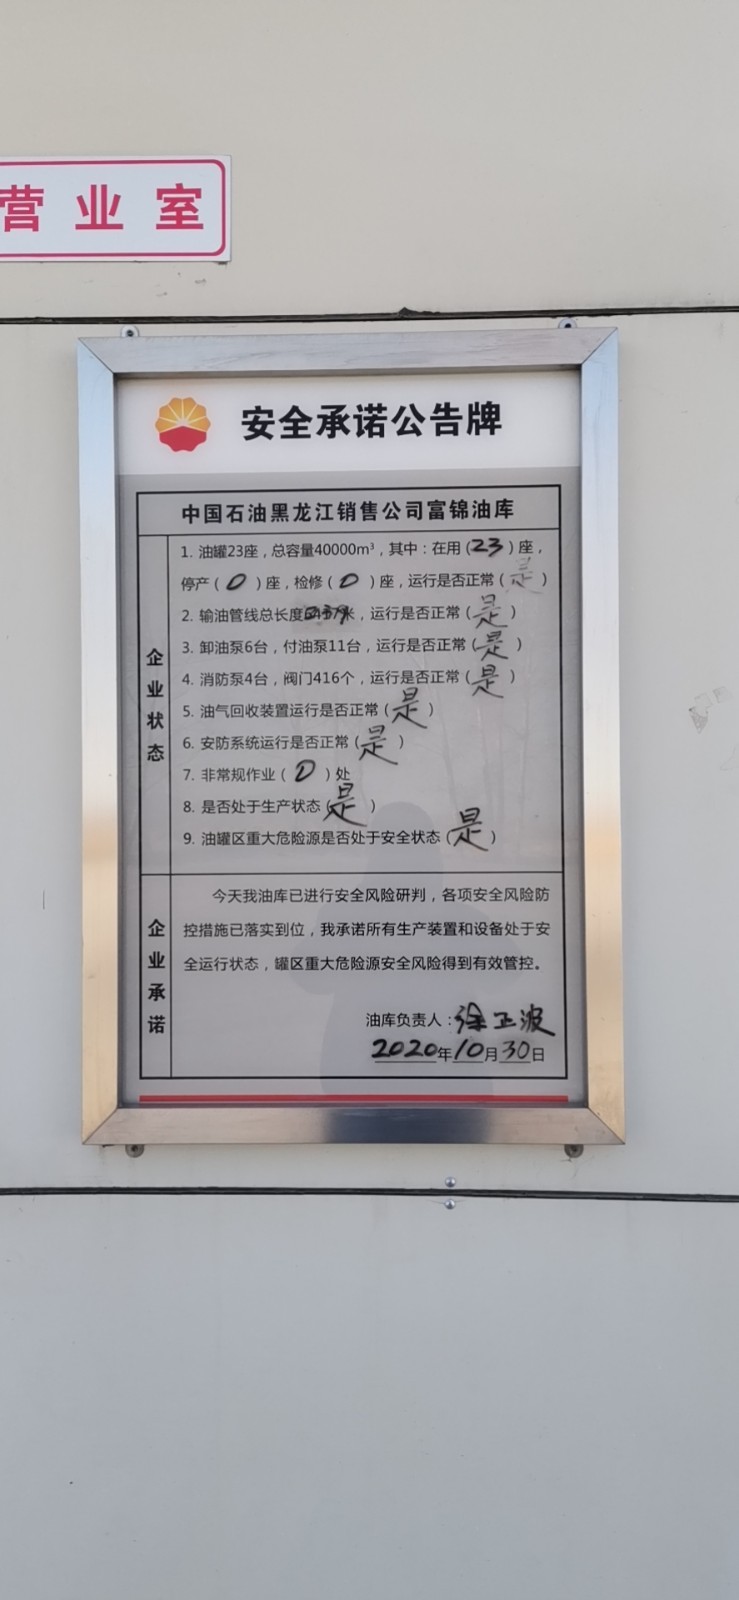 营业室
安全承诺公告牌
中国石油黑龙江销售公司富锦油库
企业状态
1. 油罐23座，总容量40000m³，其中：在用（23）座，
停产（0）座，检修（0）座，运行是否正常（是）
2. 输油管线总长度米，运行是否正常（是）
3. 卸油泵6台，付油泵11台，运行是否正常（是）
4. 消防泵4台，阀门416个，运行是否正常（是）
5. 油气回收装置运行是否正常（是）
6. 安防系统运行是否正常（是）
7. 非常规作业（0）处
8. 是否处于生产状态（是）
9. 油罐区重大危险源是否处于安全状态（是）
企业承诺
今天我油库已进行安全风险研判，各项安全风险防
控措施已落实到位，我承诺所有生产装置和设备处于安
全运行状态，罐区重大危险源安全风险得到有效管控。
油库负责人：徐正波
2020年10月30日